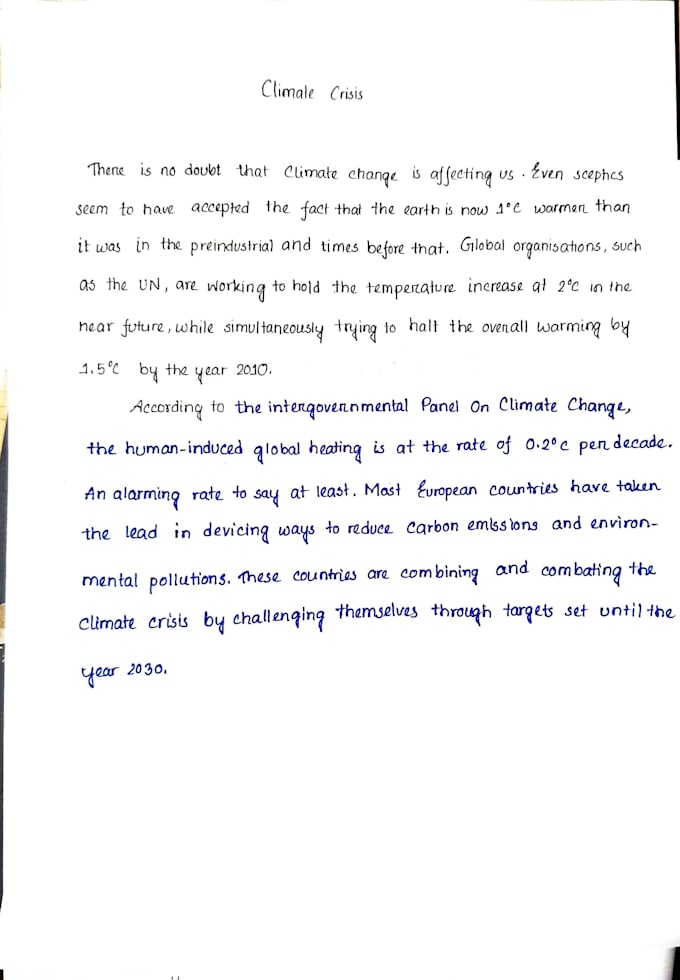 Climate Crisis
There is no doubt that Climate change is affecting us. Even sceptics
seem to have accepted the fact that the earth is now 1°C warmer than
it was in the preindustrial and times before that. Global organisations, such
as the UN, are working to hold the temperature increase at 2°C in the
near future, while simultaneously trying to halt the overall warming by
1.5°C by the year 2010.
According to the intergovernmental Panel On Climate Change,
the human-induced global heating is at the rate of 0.2°C per decade.
An alarming rate to say at least. Most European countries have taken
the lead in devicing ways to reduce carbon emissions and environ-
mental pollutions. These countries are combining and combating the
climate crisis by challenging themselves through targets set until the
year 2030.